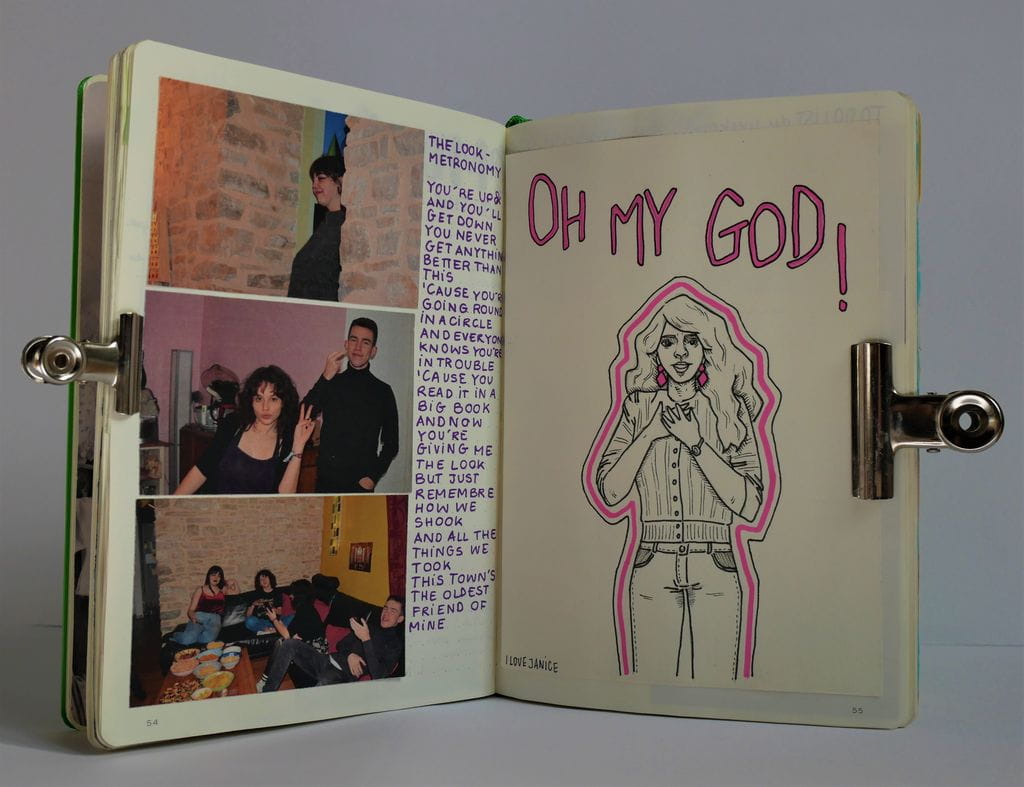 THE LOOK -
METRONOMY
YOU'RE UP &
AND YOU'LL
GET DOWN
YOU NEVER
GET ANYTHIN
BETTER THAN
THIS
'CAUSE YOU'R
GOING ROUND
IN A CIRCLE
AND EVERYON
KNOWS YOU'RE
IN TROUBLE
'CAUSE YOU
READ IT IN A
BIG BOOK
AND NOW
YOU'RE
GIVING ME
THE LOOK
BUT JUST
REMEMBRE
HOW WE
SHOOK
AND ALL THE
THINGS WE
TOOK
THIS TOWN'S
THE OLDEST
FRIEND OF
MINE
54
OH MY GOD!
I LOVE JANICE
55